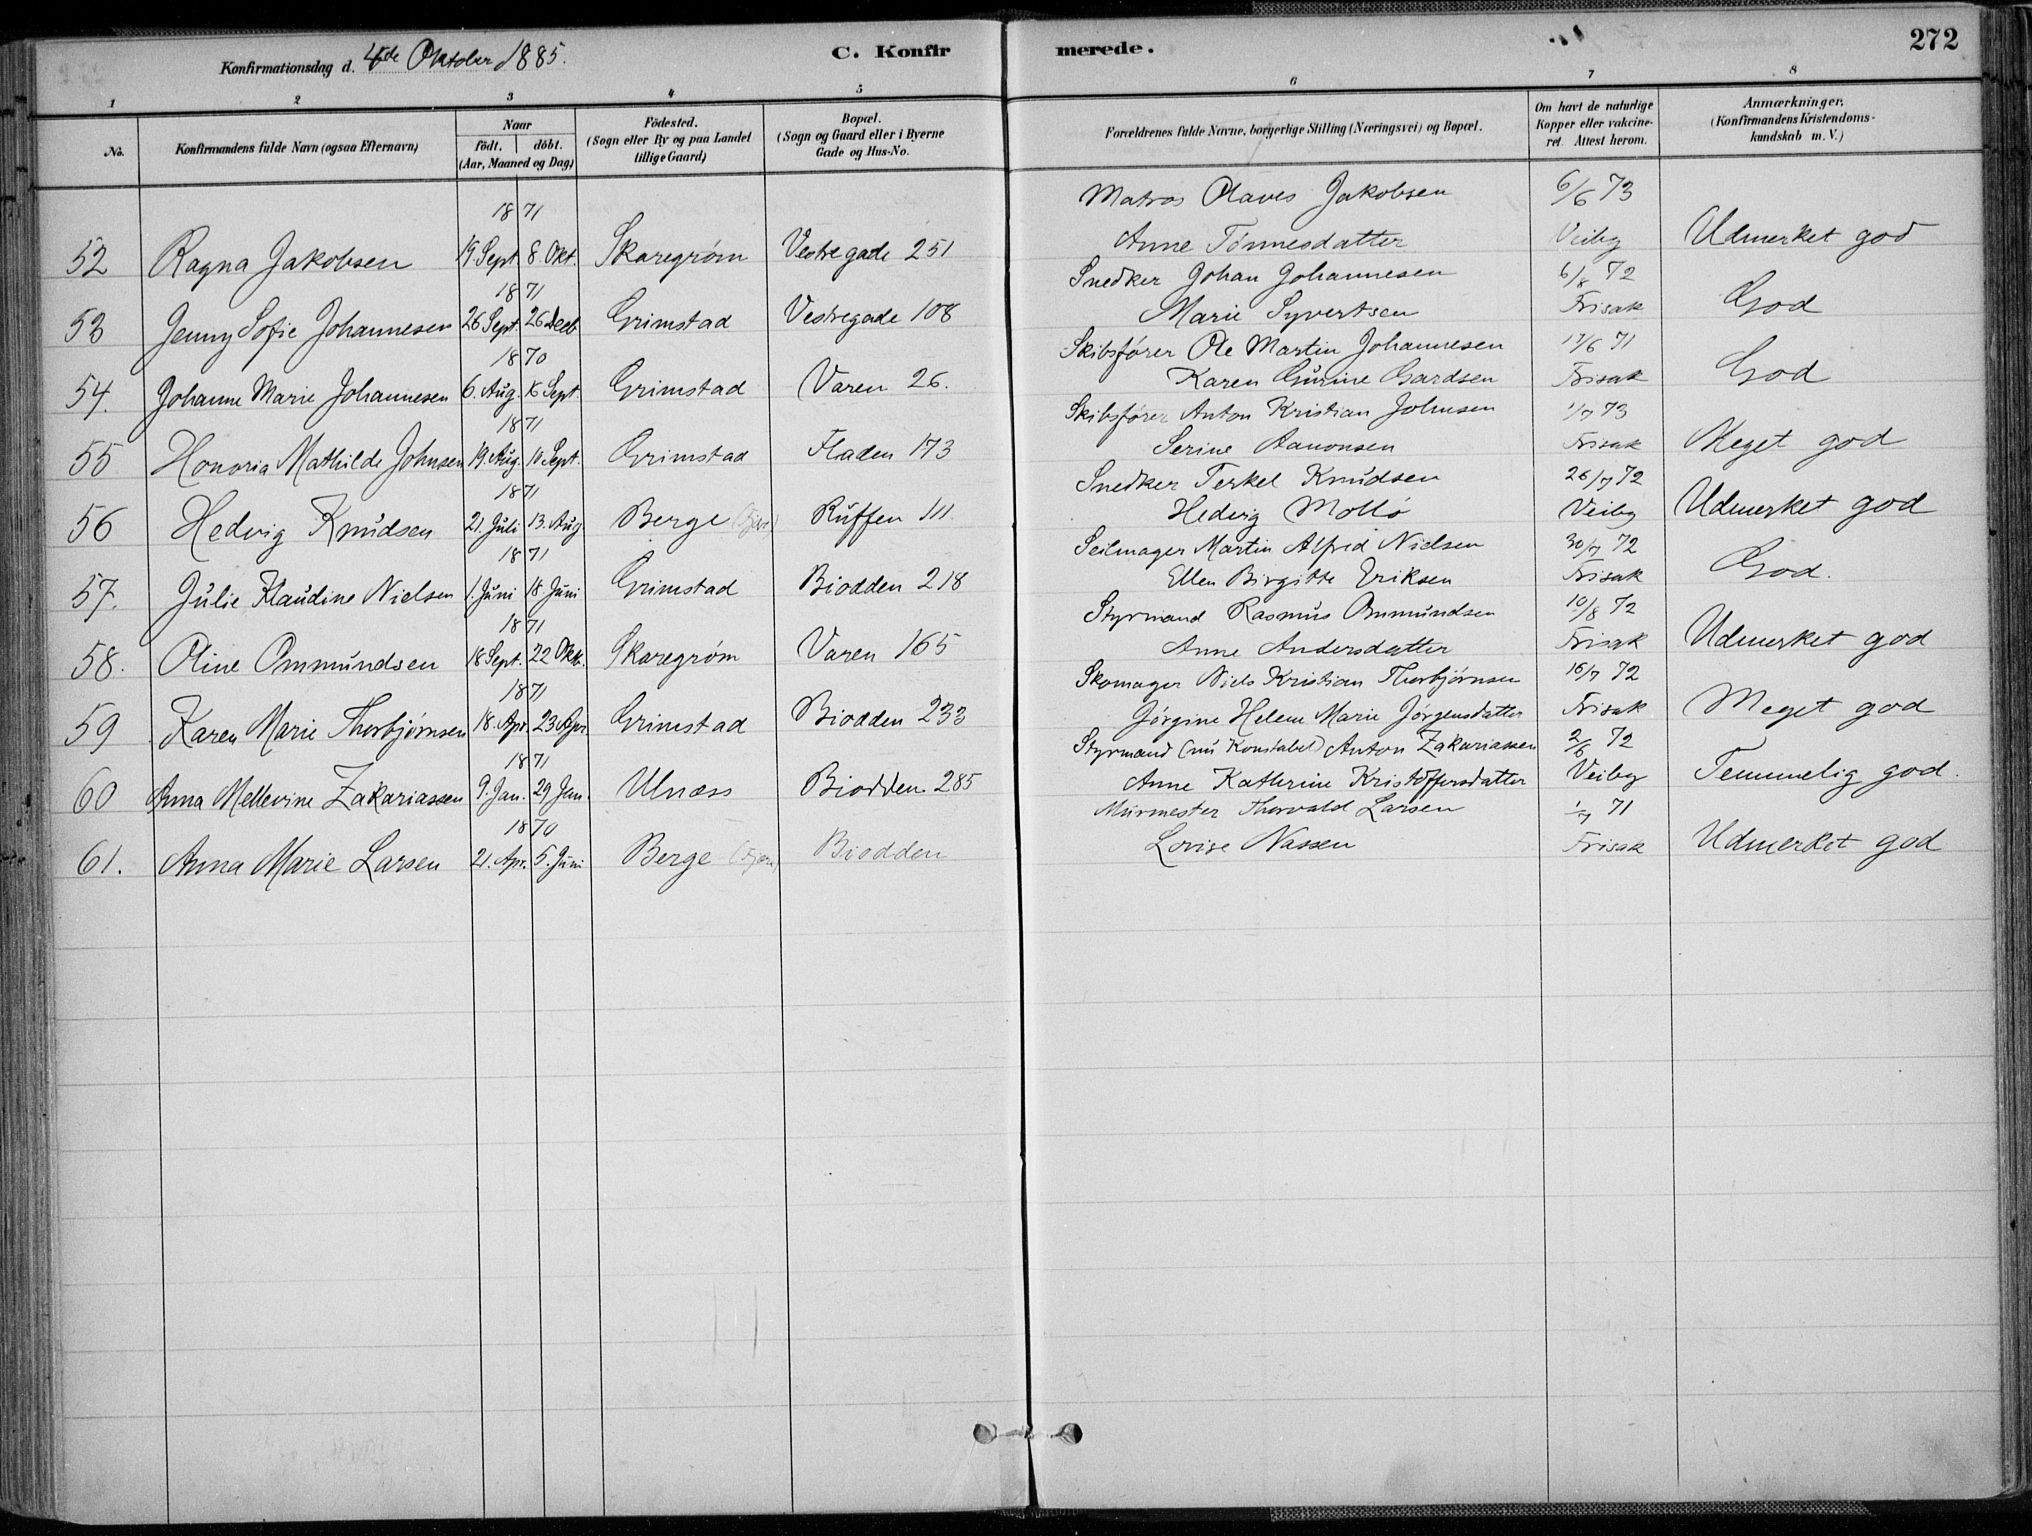 Konfirmationsdag d. 4de Oktober 1885.
C. Konfirmerede.
272
1 2 3 4 5 6 7 8
No.
Konfirmandens fulde Navn (ogsaa Efternavn)
Naar
födt. döbt.
(Aar, Maaned og Dag)
Födested.
(Sogn eller By og paa Landet
tillige Gaard)
Bopæl.
(Sogn og Gaard eller i Byerne
Gade og Hus-No.
Forældrenes fulde Navne, borgerlige Stilling (Næringsvei) og Bopæl.
Om havt de naturlige
Kopper eller vakcine-
ret. Attest herom.
Anmærkninger,
(Konfirmandens Kristendoms-
kundskab m. V.)
1871 Matros Olaves Jakobsen 6/6 73
52 Ragna Jakobsen 19. Sept 8. Okt. Skaregrøm Vestregade 251 Anne Tönnesdatter Veiby Udmerket god
1871 Snedker Johan Johannesen 6/8 72
53 Jenny Sofie Johannesen 26 Sept. 26 Decb. Grimstad Vestregade 108 Marie Syvertsen Frisak God
1870 Skibsfører Ole Martin Johannesen 17/6 71
54. Johanne Marie Johannesen 6. Aug. 16 Sept. Grimstad Varen 26. Karen Gurine Gardsen Frisak God
1871 Skibsfører Anton Kristian Johnsen 1/7 73
55 Honoria Mathilde Johnsen 19. Aug. 10 Sept. Grimstad Fladen 173 Serine Aanonsen Frisak Meget god
1871 Snedker Terkel Knudsen 26/7 72
56 Hedvig Knudsen 21. Juli 13. Aug Berge (Fjære) Ruffen 111 Hedvig Mollö Veiby Udmerket god
1871 Seilmager Martin Alfred Nielsen 30/7 72
57. Julie Klaudine Nielsen 1. Juni 18 Juni Grimstad Biodden 218 Ellen Birgitte Eriksen Frisak God.
1871 Styrmand Rasmus Ommundsen 10/8 72
58. Oline Ommundsen 18 Sept. 22 Okt. Skaregrøm Varen 165 Anne Andersdatter Frisak Udmerket god
1871 Skomager Niels Kristian Thorbjørnsen 16/7 72
59 Karen Marie Thorbjørnsen 18. Apr. 23 Apr. Grimstad Biodden 233 Jörgine Helene Marie Jörgensdatter Frisak Meget god
1871 Styrmand (nu Konstabel) Anton Zakariassen 2/6 72
60 Anna Mellevine Zakariassen 9. Jan. 29 Jan. Ulnæss Biodden 285 Anne Kathrine Kristoffersdatter Veiby Temmelig god.
1870 Murmester Thorvald Larsen 1/7 71
61. Anna Marie Larsen 21. Apr. 5. Juni Berge (Fjære) Biodden Lovise Nassen Frisak Udmerket god